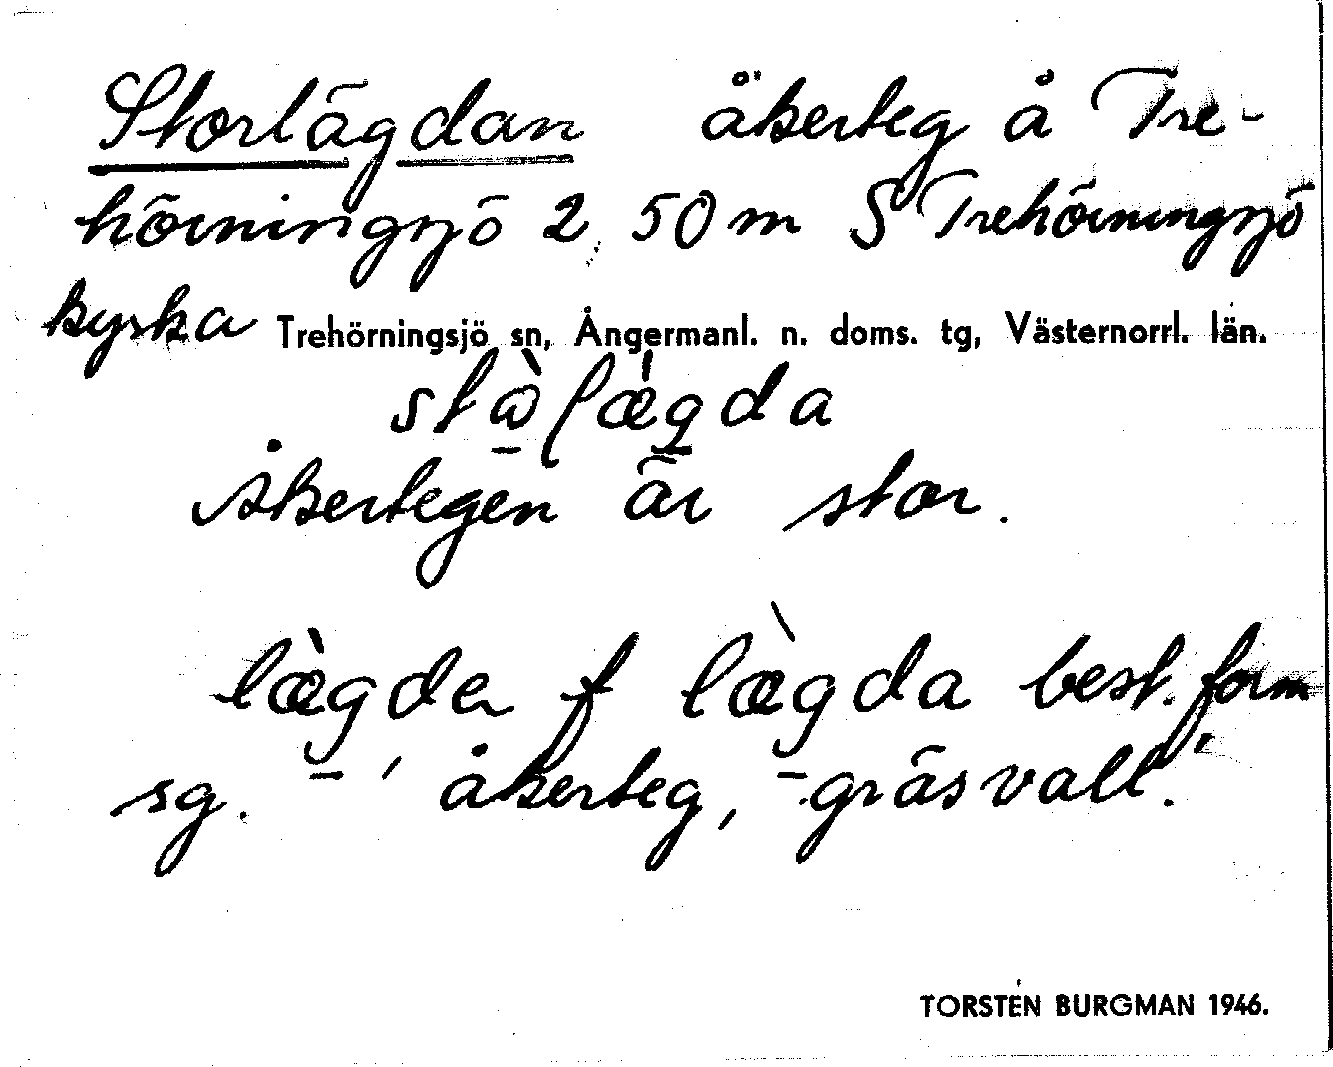 Storlägdan åkerteg å Tre-
hörningsjö 2, 50 m S Trehörningsjö
kyrka Trehörningsjö sn, Ångermanl. n. doms. tg, Västernorrl. län.
Åkertegen är stor.
lægder f lægda best. form
sg. 'åkerteg, gräsvall.'
TORSTEN BURGMAN 1946.